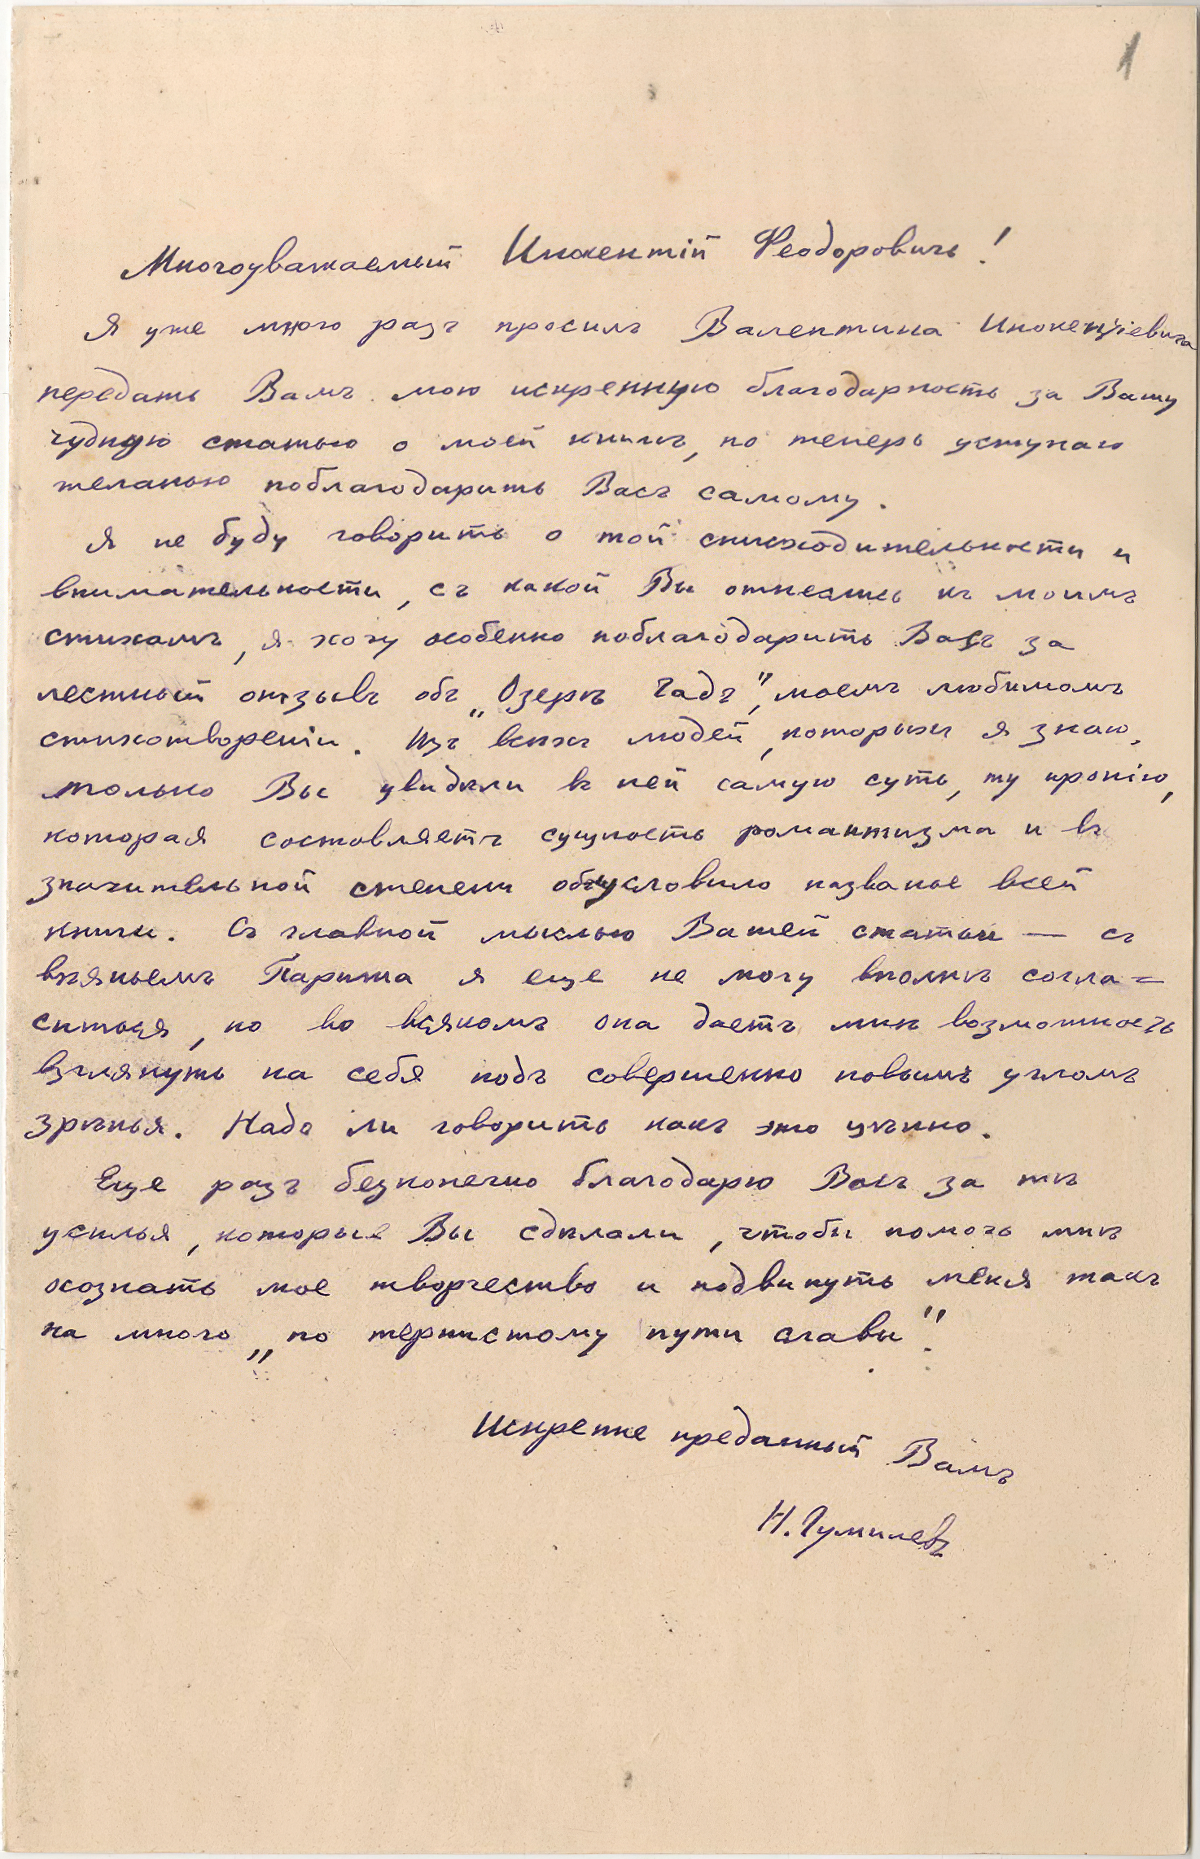 1
Многоуважаемый Инокентій Феодоровичъ!
Я уже много разъ просилъ Валентина Инокентіевича
передать Вамъ мою искреннюю благодарность за Вашу
чудную статью о моей книгѣ, но теперь уступаю
желанью поблагодарить Васъ самому.
Я не буду говорить о той снисходительности и
внимательности, съ какой Вы отнеслись къ моимъ
стихамъ, я хочу особенно поблагодарить Васъ за
лестный отзывъ объ „Озерѣ Чадъ“, моемъ любимомъ
стихотвореніи. Изъ всѣхъ людей, которыхъ я знаю,
только Вы увидѣли въ ней самую суть, ту иронію,
которая составляетъ сущность романтизма и въ
значительной степени обусловило названье всей
книги. Съ главной мыслью Вашей статьи — съ
вліяньемъ Парижа я еще не могу вполнѣ согла=
ситься, но во всякомъ она даетъ мнѣ возможность
взглянуть на себя подъ совершенно новымъ угломъ
зрѣнья. Надо ли говорить какъ это цѣнно.
Еще разъ безконечно благодарю Васъ за тѣ
усилья, которые Вы сдѣлали, чтобы помочь мнѣ
осознать мое творчество и подвинуть меня такъ
на много „по тернистому пути славы“.
Искренне преданный Вамъ
Н. Гумилевъ